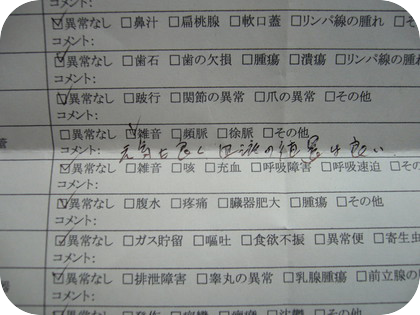 コメント:
異常なし □鼻汁 □扁桃腺 □軟口蓋 □リンパ線の腫れ
コメント:
異常なし □歯石 □歯の欠損 □腫瘍 □潰瘍 □リンパ線の腫
コメント:
異常なし □跛行 □関節の異常 □爪の異常 □その他
コメント:
□異常なし 雑音 □頻脈 □徐脈 □その他
コメント: 元気も良く 血液の結果は良い
異常なし □雑音 □咳 □充血 □呼吸障害 □呼吸速迫 □その
コメント:
異常なし □腹水 □疼痛 □臓器肥大 □腫瘍 □その他
コメント:
異常なし □ガス貯留 □嘔吐 □食欲不振 □異常便 □寄生虫
コメント:
異常なし □排泄障害 □睾丸の異常 □乳腺腫瘍 □前立腺の
コメント: